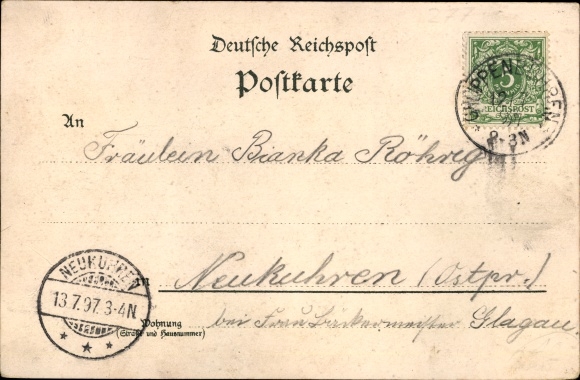 Deutsche Reichspost
Postkarte
5
REICHSPOST
2-3N
An
Fräulein Bianka Röhrig
NEUKUHREN
13.7.97.3-4N
in Neukuhren (Ostpr.)
Wohnung
(Straße und Hausnummer)
bei Frau Bäckermeister Glagau